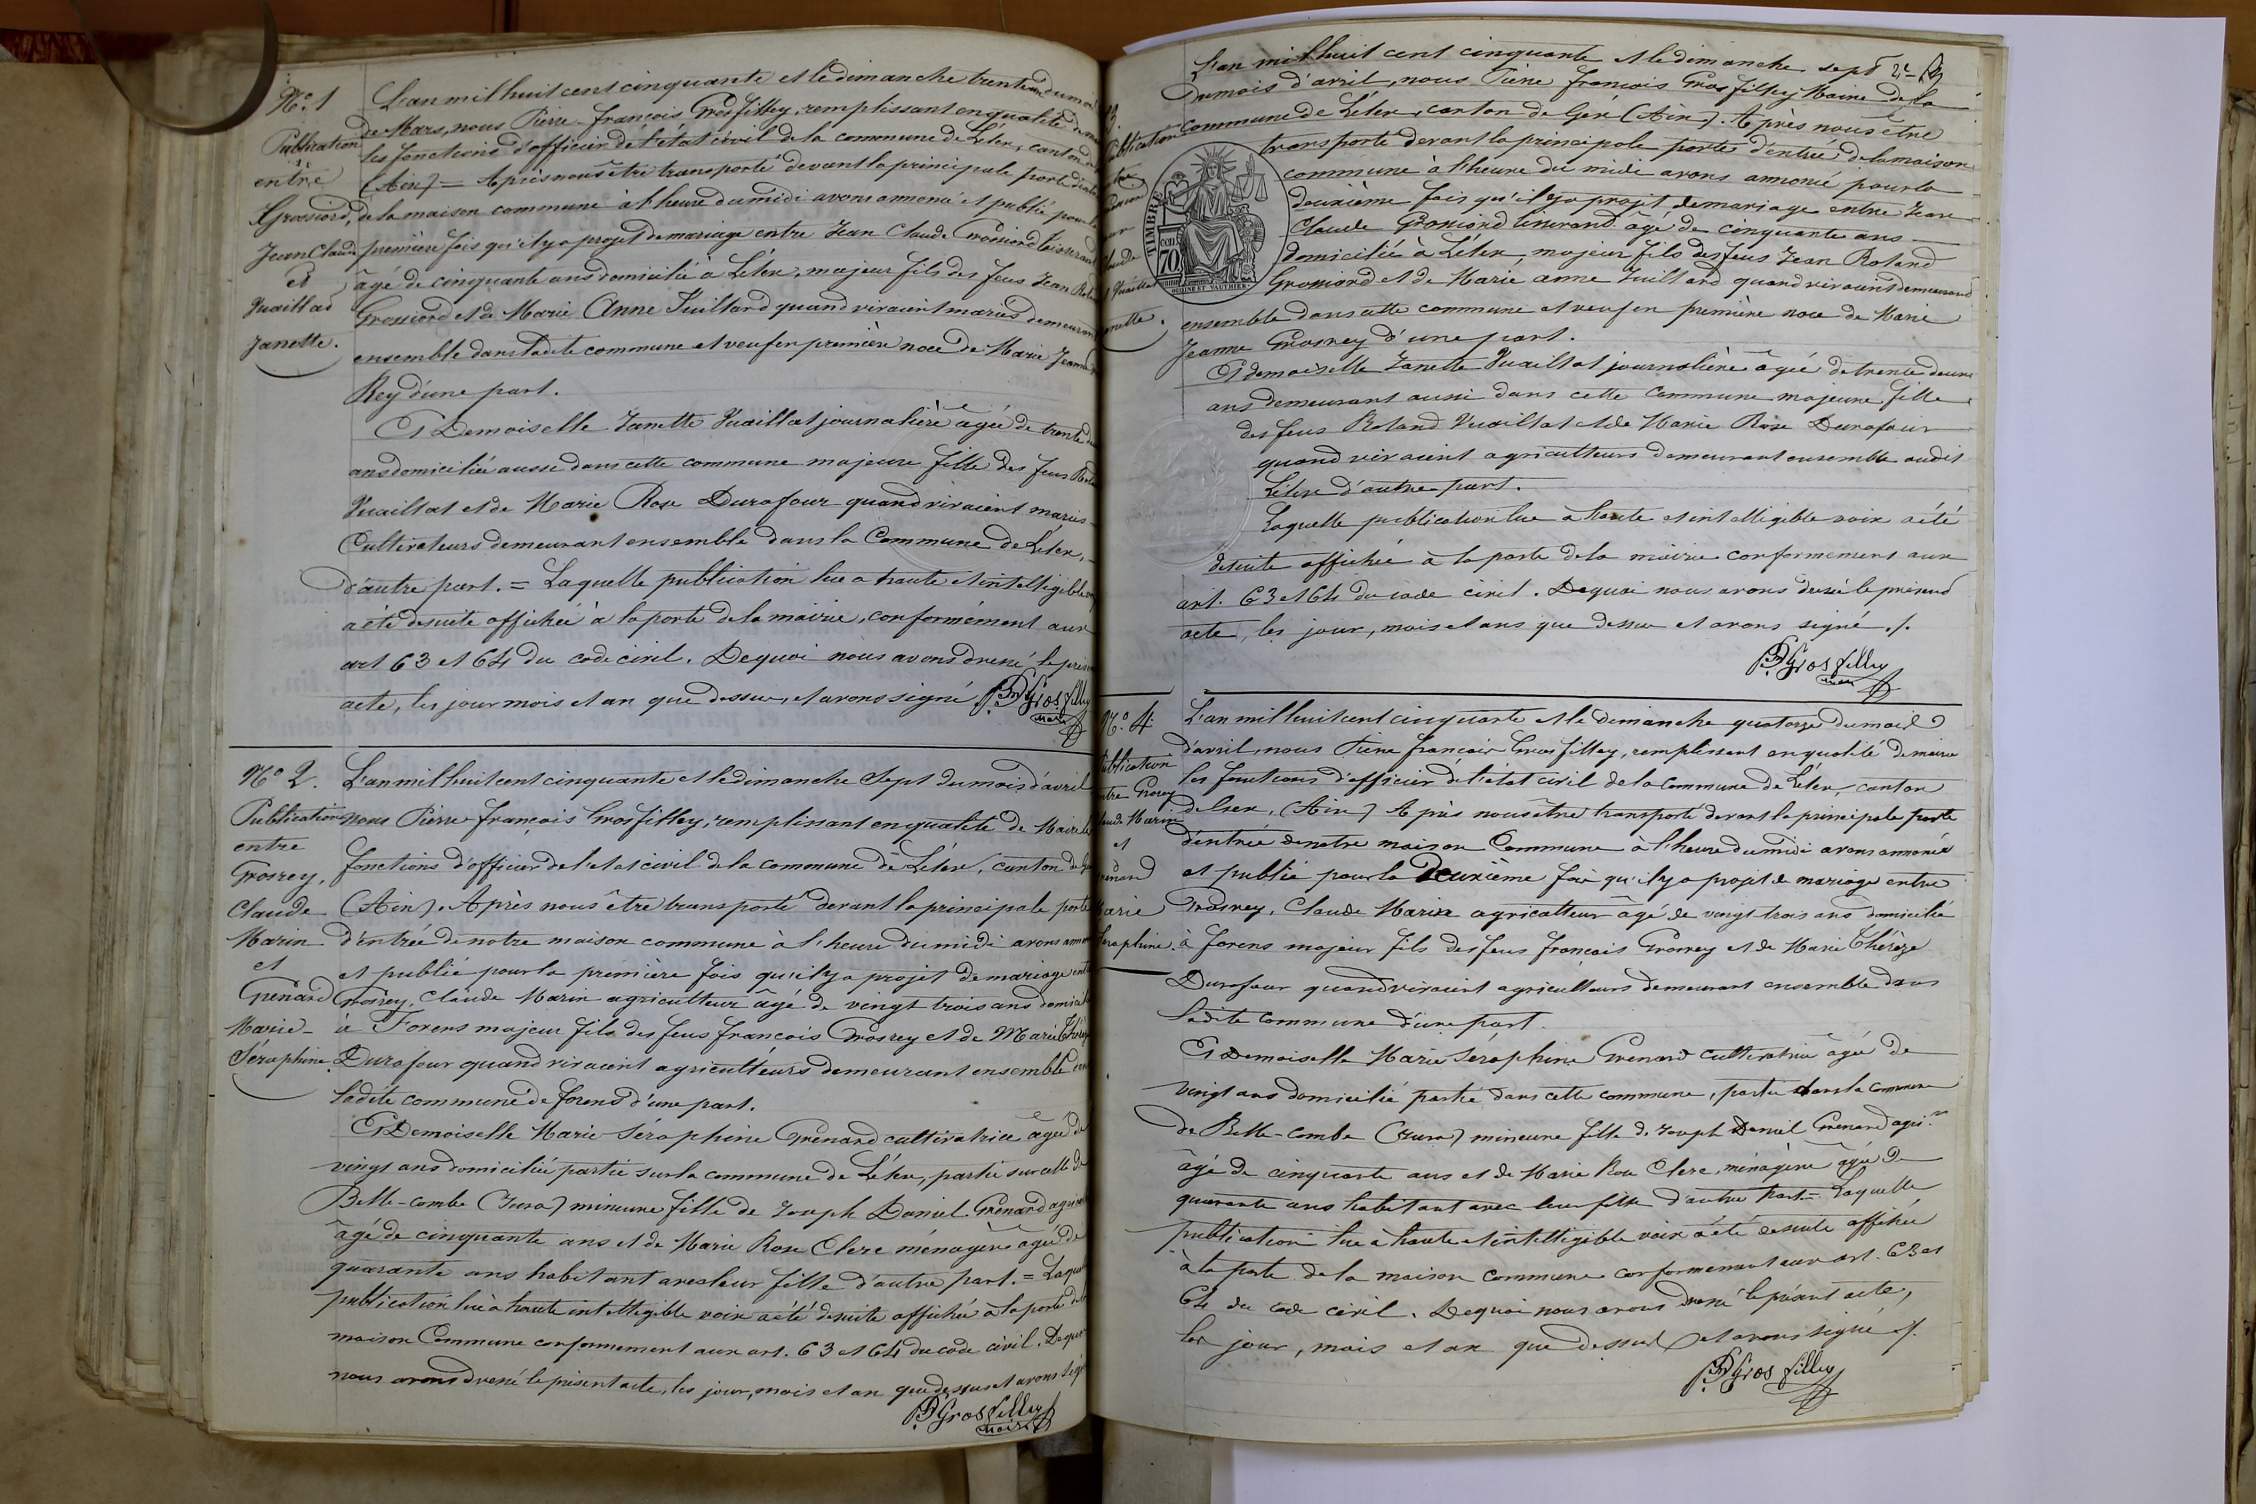 Nº. 1
Publication
entre
Grossiord,
Jean Claude
et
Vuaillat
Janette.
L'an mil huit cent cinquante et le dimanche trente un du mois
de Mars, nous Pierre-François Grosfilley, remplissant en qualité de
les fonctions d'officier de l'état civil de la commune de Lélex, canton
(Ain) = Après nous être transporté devant la principale porte d'entrée
de la maison commune à l'heure du midi avons annoncé et publié pour la
première fois qu'il y a projet de mariage entre Jean Claude Grossiord tisserand
âgé de cinquante ans domicilié à Lélex, majeur fils des feus Jean Roland
Grossiord et de Marie Anne Juillard quand vivaient mariés demeurant
ensemble dans ladite commune et veuf en première noce de Marie Jeanne
Rey d'une part.
Et Demoiselle Janette Vuaillat journalière âgée de trente
ans domiciliée aussi dans cette commune majeure fille des feus Roland
Vuaillat et de Marie Rose Durafour quand vivaient mariés
Cultivateurs demeurant ensemble dans la Commune de Lélex,
d'autre part. = Laquelle publication lue a haute et intelligible
a été desuite affichée à la porte de la mairie, conformément aux
art 63 et 64 du code civil. De quoi nous avons dressé le présent
acte, les jour mois et an que dessus, et avons signé Grosfilley
maire
Nº 2.
Publication
entre
Grosrey,
Claude
Marin
et
Grenard
Marie-
Séraphine.
L'an mil huit cent cinquante et le dimanche Sept du mois d'avril
nous Pierre-François Grosfilley, remplissant en qualité de Maire les
fonctions d'officier de l'état civil de la commune de Lélex, canton de Gex
(Ain). Après nous être transporté devant la principale porte
d'entrée de notre maison commune à l'heure du midi avons annoncé
et publié pour la première fois qu'il y a projet de mariage entre
Grosrey, Claude Marin agriculteur âgé de vingt trois ans domicilié
à Forens majeur fils des feus François Grosrey et de Marie Thérèze
Durafour quand vivaient agriculteurs demeurant ensemble
ladite commune de forens d'une part.
Et Demoiselle Marie Séraphine Grenard cultivatrice âgée de
vingt ans domiciliée partie sur la commune de Lélex, partie sur celle de
Belle-combe (Jura) mineure fille de Joseph Daniel Grenard
âgé de cinquante ans et de Marie Rose Clerc ménagère âgée de
quarante ans habitant avec leur fille d'autre part. = Laquelle
publication lue à haute intelligible voix a été desuite affichée à la porte de la
maison Commune conformement aux art. 63 et 64 du code civil. De quoi
nous avons dressé le présent acte, les jour, mois et an que dessus et avons signé
Grosfilley
maire
Publication
L'an mil huit cent cinquante et le dimanche sept
du mois d'avril, nous Pierre François Grosfilley Maire de la
commune de Lélex, canton de Gex (Ain). Après nous être
transporté devant la principale porte d'entrée de la maison
commune à l'heure du midi avons annoncé pour la
deuxième fois qu'il y a projet de mariage entre Jean
Claude Grossiord tisserand âgé de cinquante ans
domicilié à Lélex, majeur fils des feus Jean Roland
Grossiord et de Marie anne Juillard quand vivaient demeurant
ensemble dans cette commune et veuf en première noce de Marie
Jeanne Grosrey d'une part.
Et demoiselle Janette Vuaillat journalière âgée de trente deux
ans demeurant aussi dans cette commune majeure fille
des feus Roland Vuaillat et de Marie Rose Durafour
quand vivaient agriculteurs demeurant ensemble audit
Lélex d'autre part.
Laquelle publication lue à haute et intelligible voix a été
desuite affichée à la porte de la mairie conformement aux
art. 63 et 64 du code civil. De quoi nous avons dressé le présent
acte, les jour, mois et ans que dessus et avons signé ./.
Grosfilley
maire
TIMBRE
cen
70
Nº. 4.
Publication
entre Grosrey
Claude Marin
et
Grenard
Marie
Séraphine.
L'an mil huit cent cinquante et le dimanche quatorze du mois
d'avril, nous Pierre françois Grosfilley, remplissant en qualité de maire
les fonctions d'officier de l'état civil de la commune de Lélex, canton
de Gex, (Ain) Après nous être transporté devant la principale porte
d'entrée de notre maison Commune à l'heure du midi avons annoncé
et publié pour la Deuxième fois qu'il y a projet de mariage entre
Grosrey, Claude Marin agriculteur âgé de vingt trois ans domicilié
à forens majeur fils des feus françois Grosrey et de Marie Thérèze
Durafour quand vivaient agriculteurs demeurant ensemble dans
ladite commune d'une part.
Et Demoiselle Marie Séraphine Grenard cultivatrice âgée de
vingt ans domicilié partie dans cette commune, partie dans la commune
de Belle-combe (Jura) mineure fille de Joseph Daniel Grenard agri.
âgé de cinquante ans et de Marie Rose Clerc, ménagère âgée de
quarante ans habitant avec leur fille d'autre part = Laquelle
publication lue à haute et intelligible voix a été desuite affichée
à la porte de la maison commune conformement aux art. 63 et
64 du code civil. De quoi nous avons dressé le présent acte,
les jour, mois et an que dessus et avons signé ./.
Grosfilley